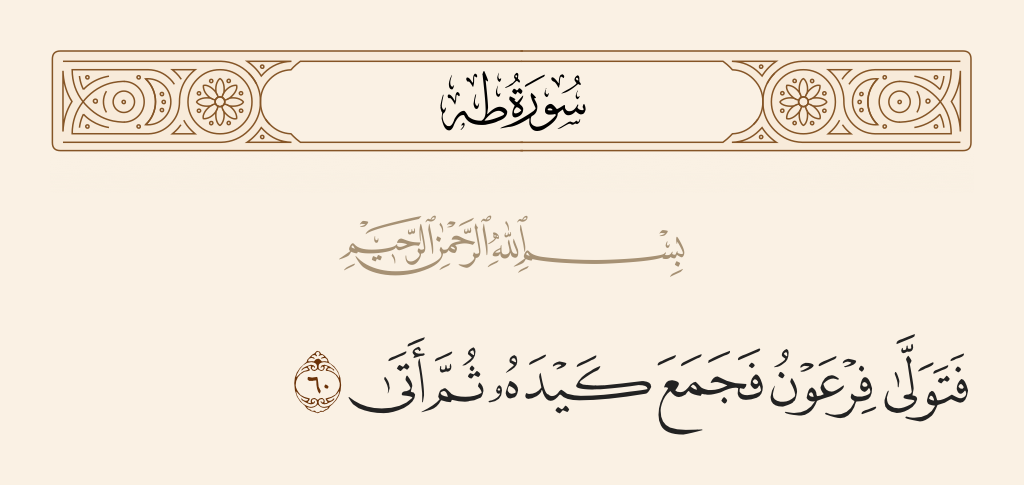 سُورَةُ طه
بِسْمِ ٱللَّهِ ٱلرَّحْمَٰنِ ٱلرَّحِيمِ
فَتَوَلَّىٰ فِرْعَوْنُ فَجَمَعَ كَيْدَهُۥ ثُمَّ أَتَىٰ ٦٠